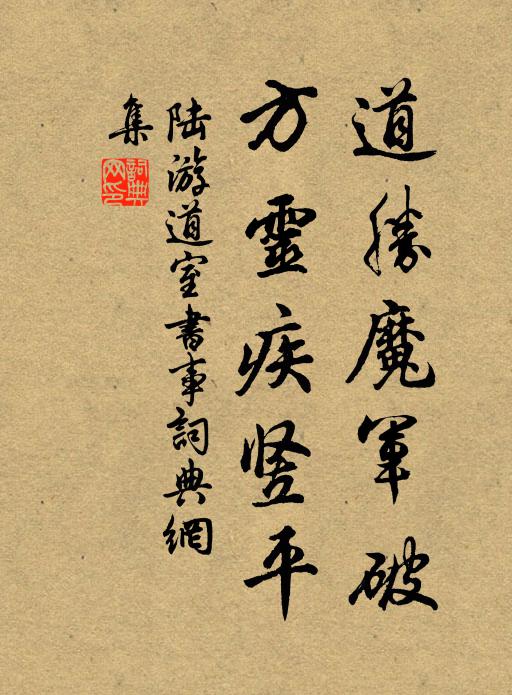 道勝魔軍破
方靈疾竖平
陆游道室書事詞典網
集
詞典
网印